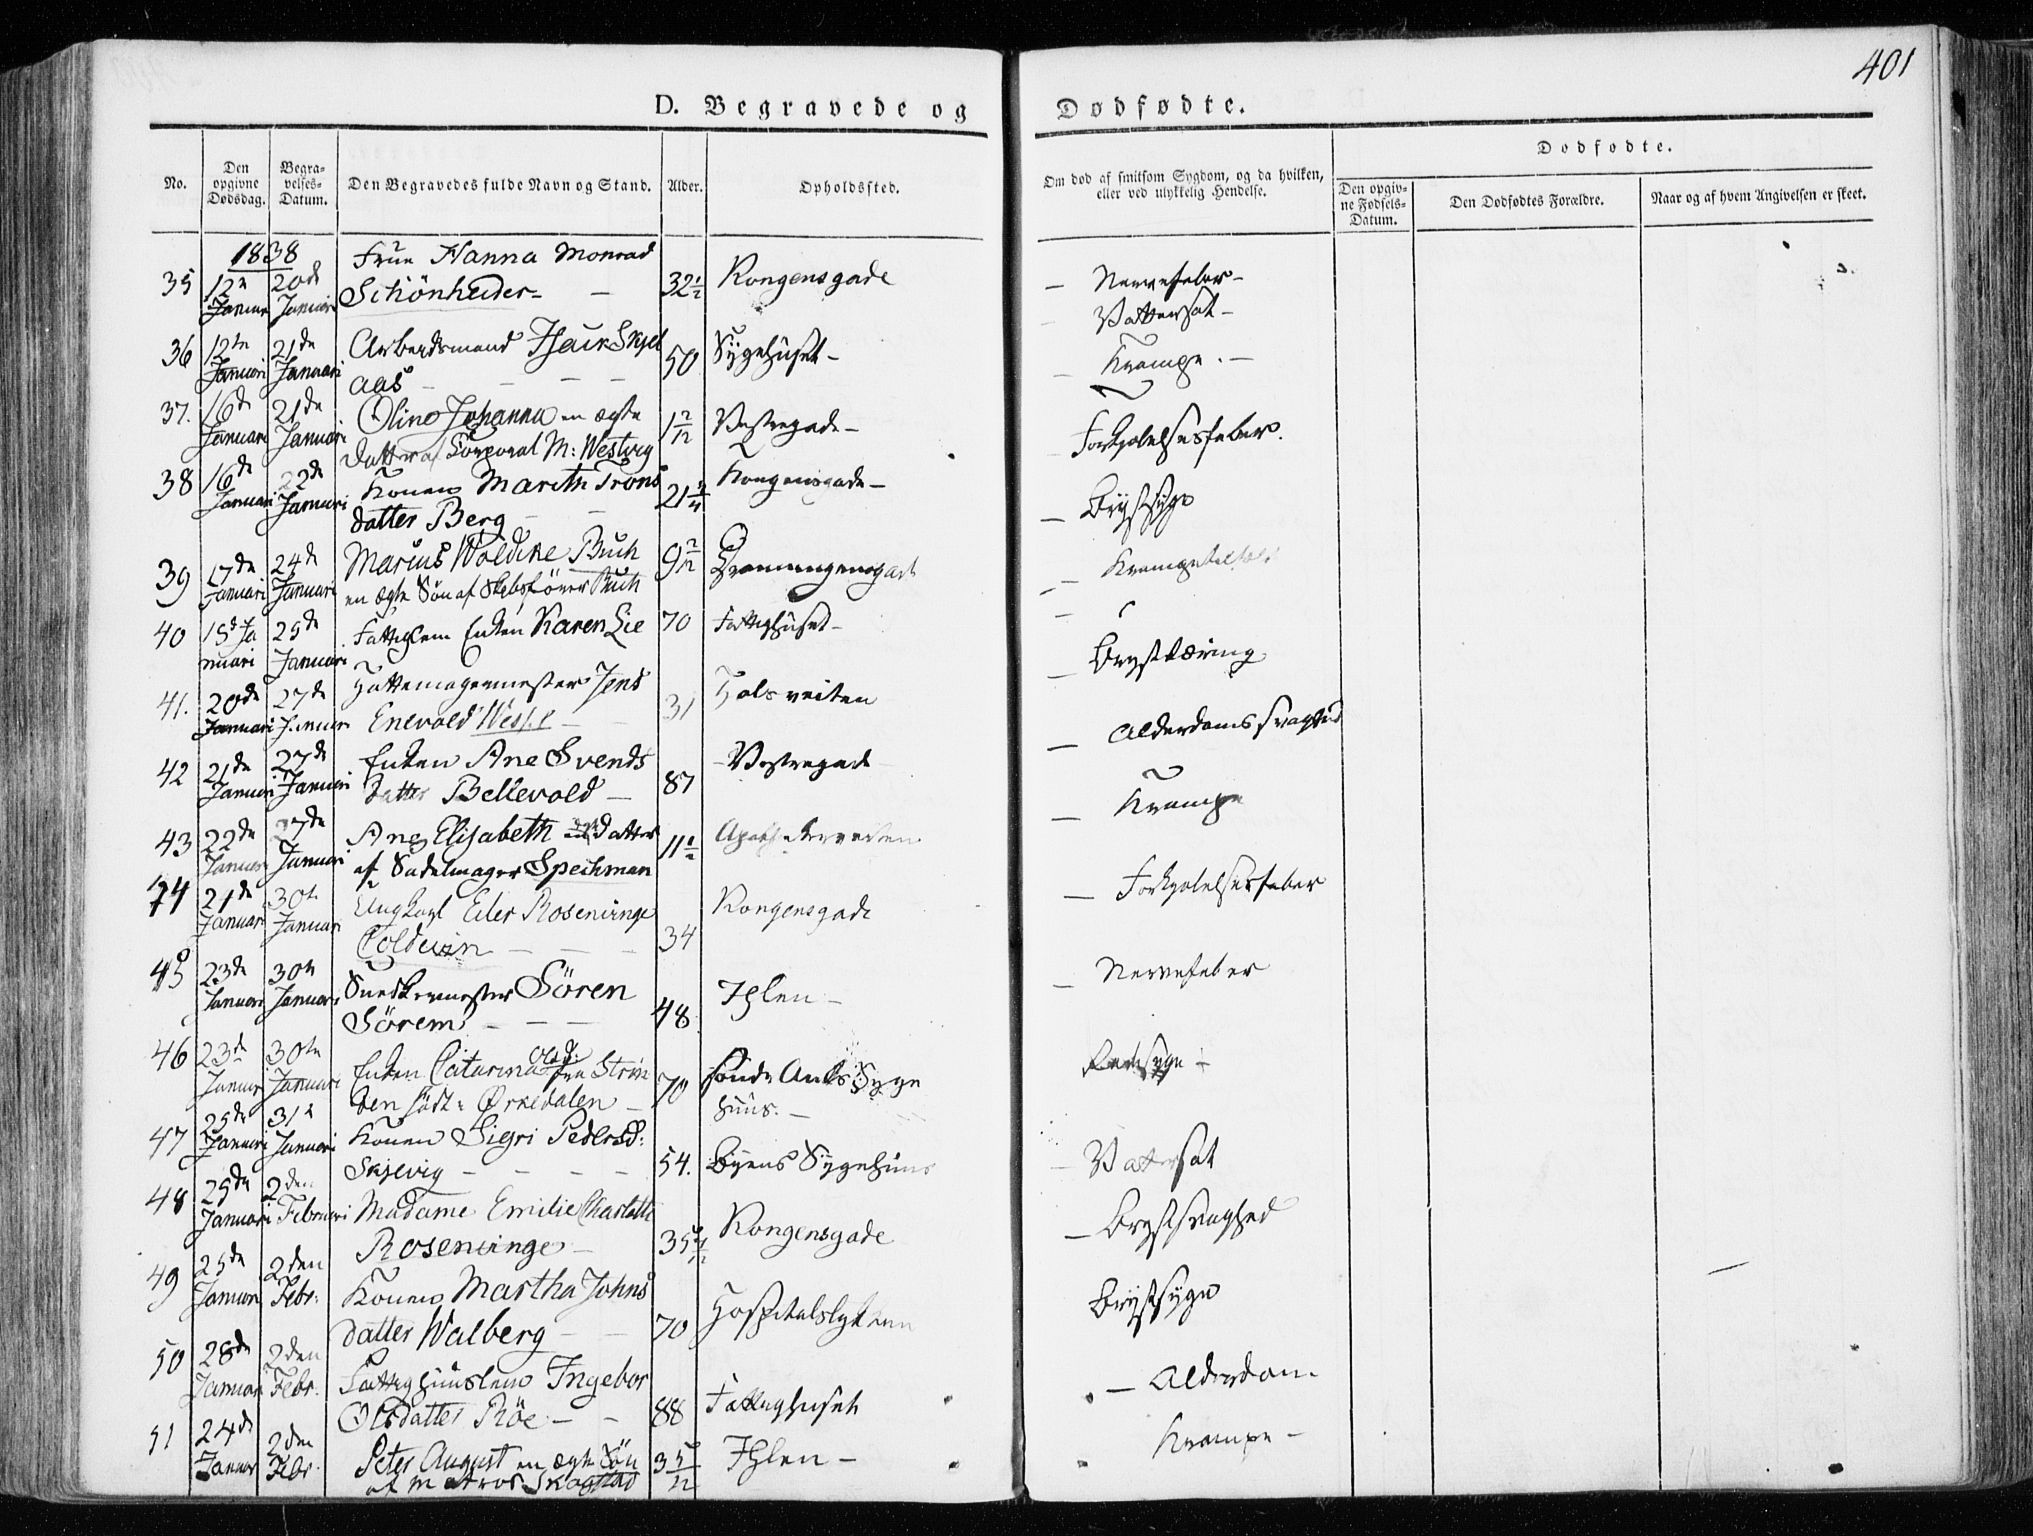 401
D. Begravede og Dødfødte.
No.
Den opgivne Dødsdag.
Begravelses-Datum.
Den Begravedes fulde Navn og Stand.
Alder.
Opholdssted.
Om død af smitsom Sygdom, og da hvilken, eller ved ulykkelig Hendelse.
Dødfødte.
Den opgivne Fødsels-Datum.
Den Dødfødtes Forældre.
Naar og af hvem Angivelsen er skeet.
1838
35 12te Januar 20de Januari Frue Hanna Monrad
Schönheider - 32½ Kongensgade
- Nervefeber -
Vattersot -
36 12te Januari 21de Januari Arbeidsmand Isac Skjel
aas - 50 Sygehuset -
- Krampe. -
37. 16de Januari 21de Januari Oline Johanna en ægte
Datter af Corporal M: Westvig Vestregade -
Forkjølelsesfeber.
38 16de Januari 22de Januari Konen Marith Trons
datter Berg - Kongensgade -
- Brystsyge
39 17de Januari 24de Januari Marius Woldike Buch
en ægte Søn af Skibsfører Buch
- Krampetilfæld
40 Januari 25de Januari Fattiglem Enken Karen Lie 70 Fattighuset -
Brysttæring
41. 20de Januari 27de Januar Hattemagermester Jens
Enevold 31 Hals veiten
- Alderdoms svaghed
42 21de Januari 27de Januari Enken Ane Svends
datter Bellevold - 87 Vestregade
- Krampe
43 22de Januar 27de Januari Ane Elisabeth Datter
af Sadelmager Spechman 11½
- Forkjølelsesfeber
44 21de Januar 30te Januar Ungkarl Eiler Rosenvinge
Coldevin - 34 Kongensgade
- Nervefeber
45 23de Januari 30te Januari Snedkermester Sören
Sörem - 48 Ihlen -
46 23de Januari 30te Januari Enken Catarina Olsd: fra Strin
den født i Ørkedalen - 70 Syge
huus. -
47 25de Januari 31te Januari Konen Sigri Pedersd:
Skjevig - 54. Byens Sygehuus
- Vattersot
48 25de Januari 2den Februari Madame Emilie Charlotte
Rosenvinge - Kongensgade
- Brystsvaghed
49 25de Januari 2den Febr: Konen Martha Johns
datter Walberg - 70
Brystsyge
50 28de Januar 2den Febr. Fattighuuslem Ingebor
Olsdatter Röe - 88 Fattighuset
- Alderdom
51 24de Januar 2den Febr. Peter August en ægte Søn
af Matros Skogstad 3 5/12 Ihlen -
Krampe -